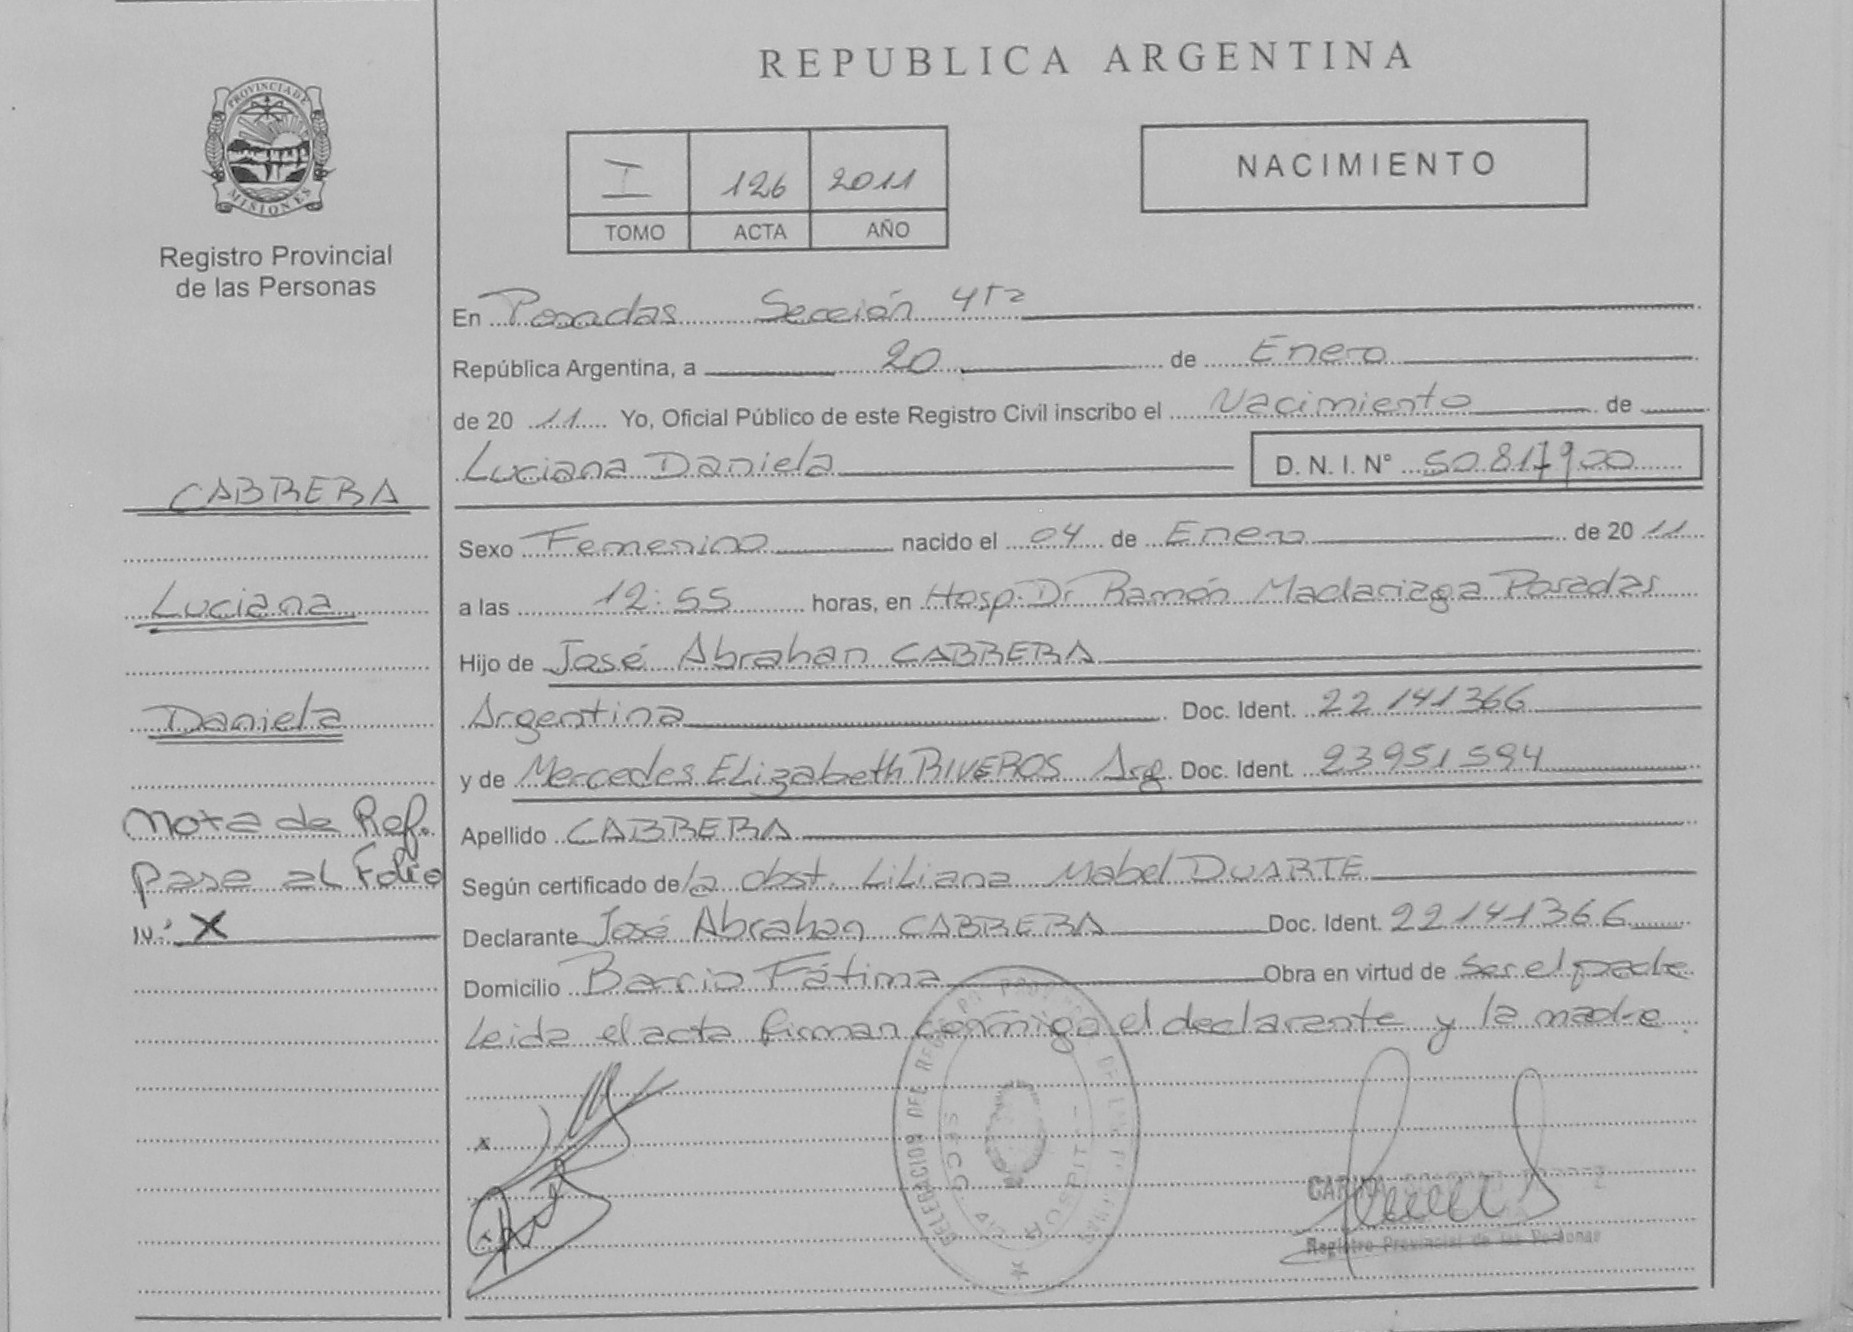 REPUBLICA ARGENTINA
PROVINCIA DE
MISIONES
Registro Provincial
de las Personas
I 126 2011
TOMO ACTA AÑO
NACIMIENTO
En Posadas Sección 4ta
República Argentina, a 20 de Enero
de 20 11 Yo, Oficial Público de este Registro Civil inscribo el Nacimiento de
Luciana Daniela D.N.I. N° 50.817900
CABRERA
Luciana
Daniela
Nota de Ref.
pase al Folio
N° X
Sexo Femenino nacido el 04 de Enero de 20 11
a las 12:55 horas, en Hosp. Dr Ramón Madariaga Posadas
Hijo de José Abrahan CABRERA
Argentina Doc. Ident. 22141366
y de Mercedes Elizabeth RIVEROS Arg. Doc. Ident. 23951594
Apellido CABRERA
Según certificado de la obst. Liliana Mabel DUARTE
Declarante José Abrahan CABRERA Doc. Ident. 22141366
Domicilio Barrio Fátima Obra en virtud de ser el padre
Leida el acta firman conmigo el declarante y la madre.
DELEGACION DEL
SECC. 4ta
Registro Provincial de las Personas